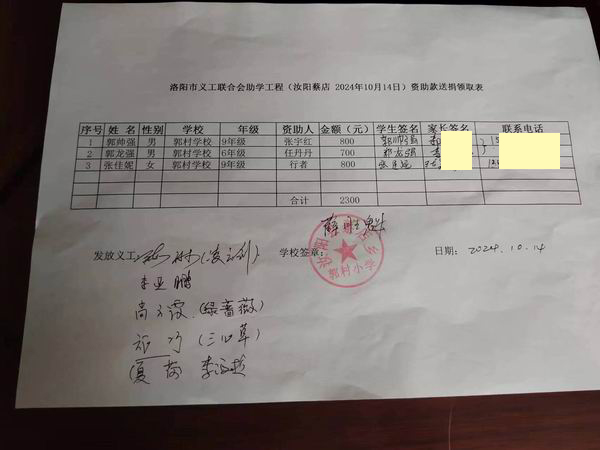 洛阳市义工联合会助学工程（汝阳蔡店 2024年10月14日）资助款送捐领取表
序号 姓名 性别 学校 年级 资助人 金额（元） 学生签名 家长签名 联系电话
1 郭帅强 男 郭村学校 9年级 张宇红 800 郭帅强
2 郭龙强 男 郭村学校 6年级 任丹丹 700 郭龙强
3 张佳妮 女 郭村学校 9年级 行者 800 张佳妮
合计 2300
发放义工: 学校签章: 郭村小学 日期: 2024.10.14
李亚鹏
(绿蔷薇)
(三心草)
(夏荷)